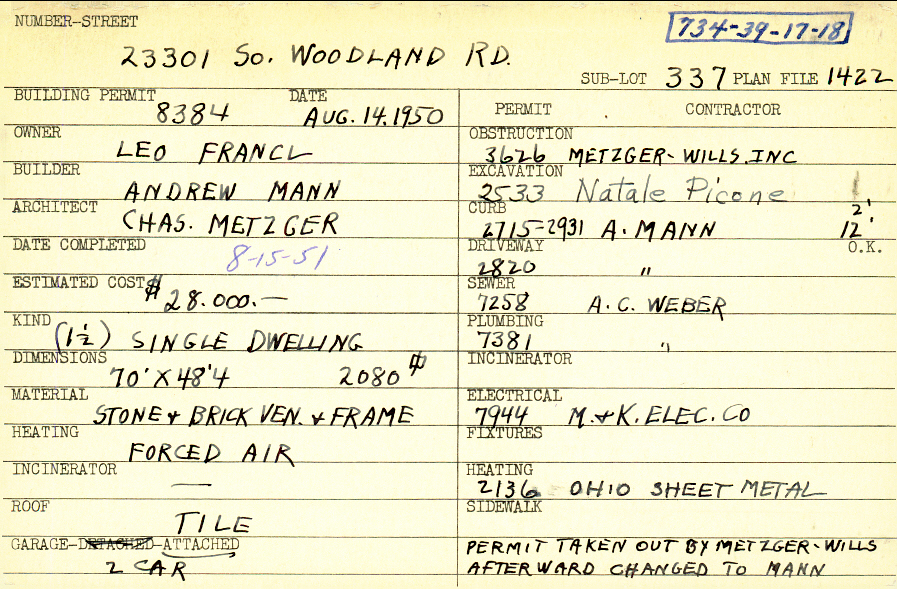 NUMBER-STREET
734-39-17-18
23301 So. WOODLAND RD.
SUB-LOT 337 PLAN FILE 1422
BUILDING PERMIT 8384 DATE AUG. 14. 1950
OWNER LEO FRANCL
BUILDER ANDREW MANN
ARCHITECT CHAS. METZGER
DATE COMPLETED 8-15-51
ESTIMATED COST $ 28.000.—
KIND (1½) SINGLE DWELLING
DIMENSIONS 70' X 48'4 2080
MATERIAL STONE & BRICK VEN. & FRAME
HEATING FORCED AIR
INCINERATOR —
ROOF TILE
GARAGE-DETACHED-ATTACHED
2 CAR
PERMIT CONTRACTOR
OBSTRUCTION 3626 METZGER-WILLS. INC
EXCAVATION 2533 Natale Picone
CURB 2715-2931 A. MANN 2' 12'
O.K.
DRIVEWAY 2820 "
SEWER 7258 A.C. WEBER
PLUMBING 7381 "
INCINERATOR
ELECTRICAL 7944 M. & K. ELEC. CO
FIXTURES
HEATING 2136 OHIO SHEET METAL
SIDEWALK
PERMIT TAKEN OUT BY METZGER-WILLS
AFTERWARD CHANGED TO MANN